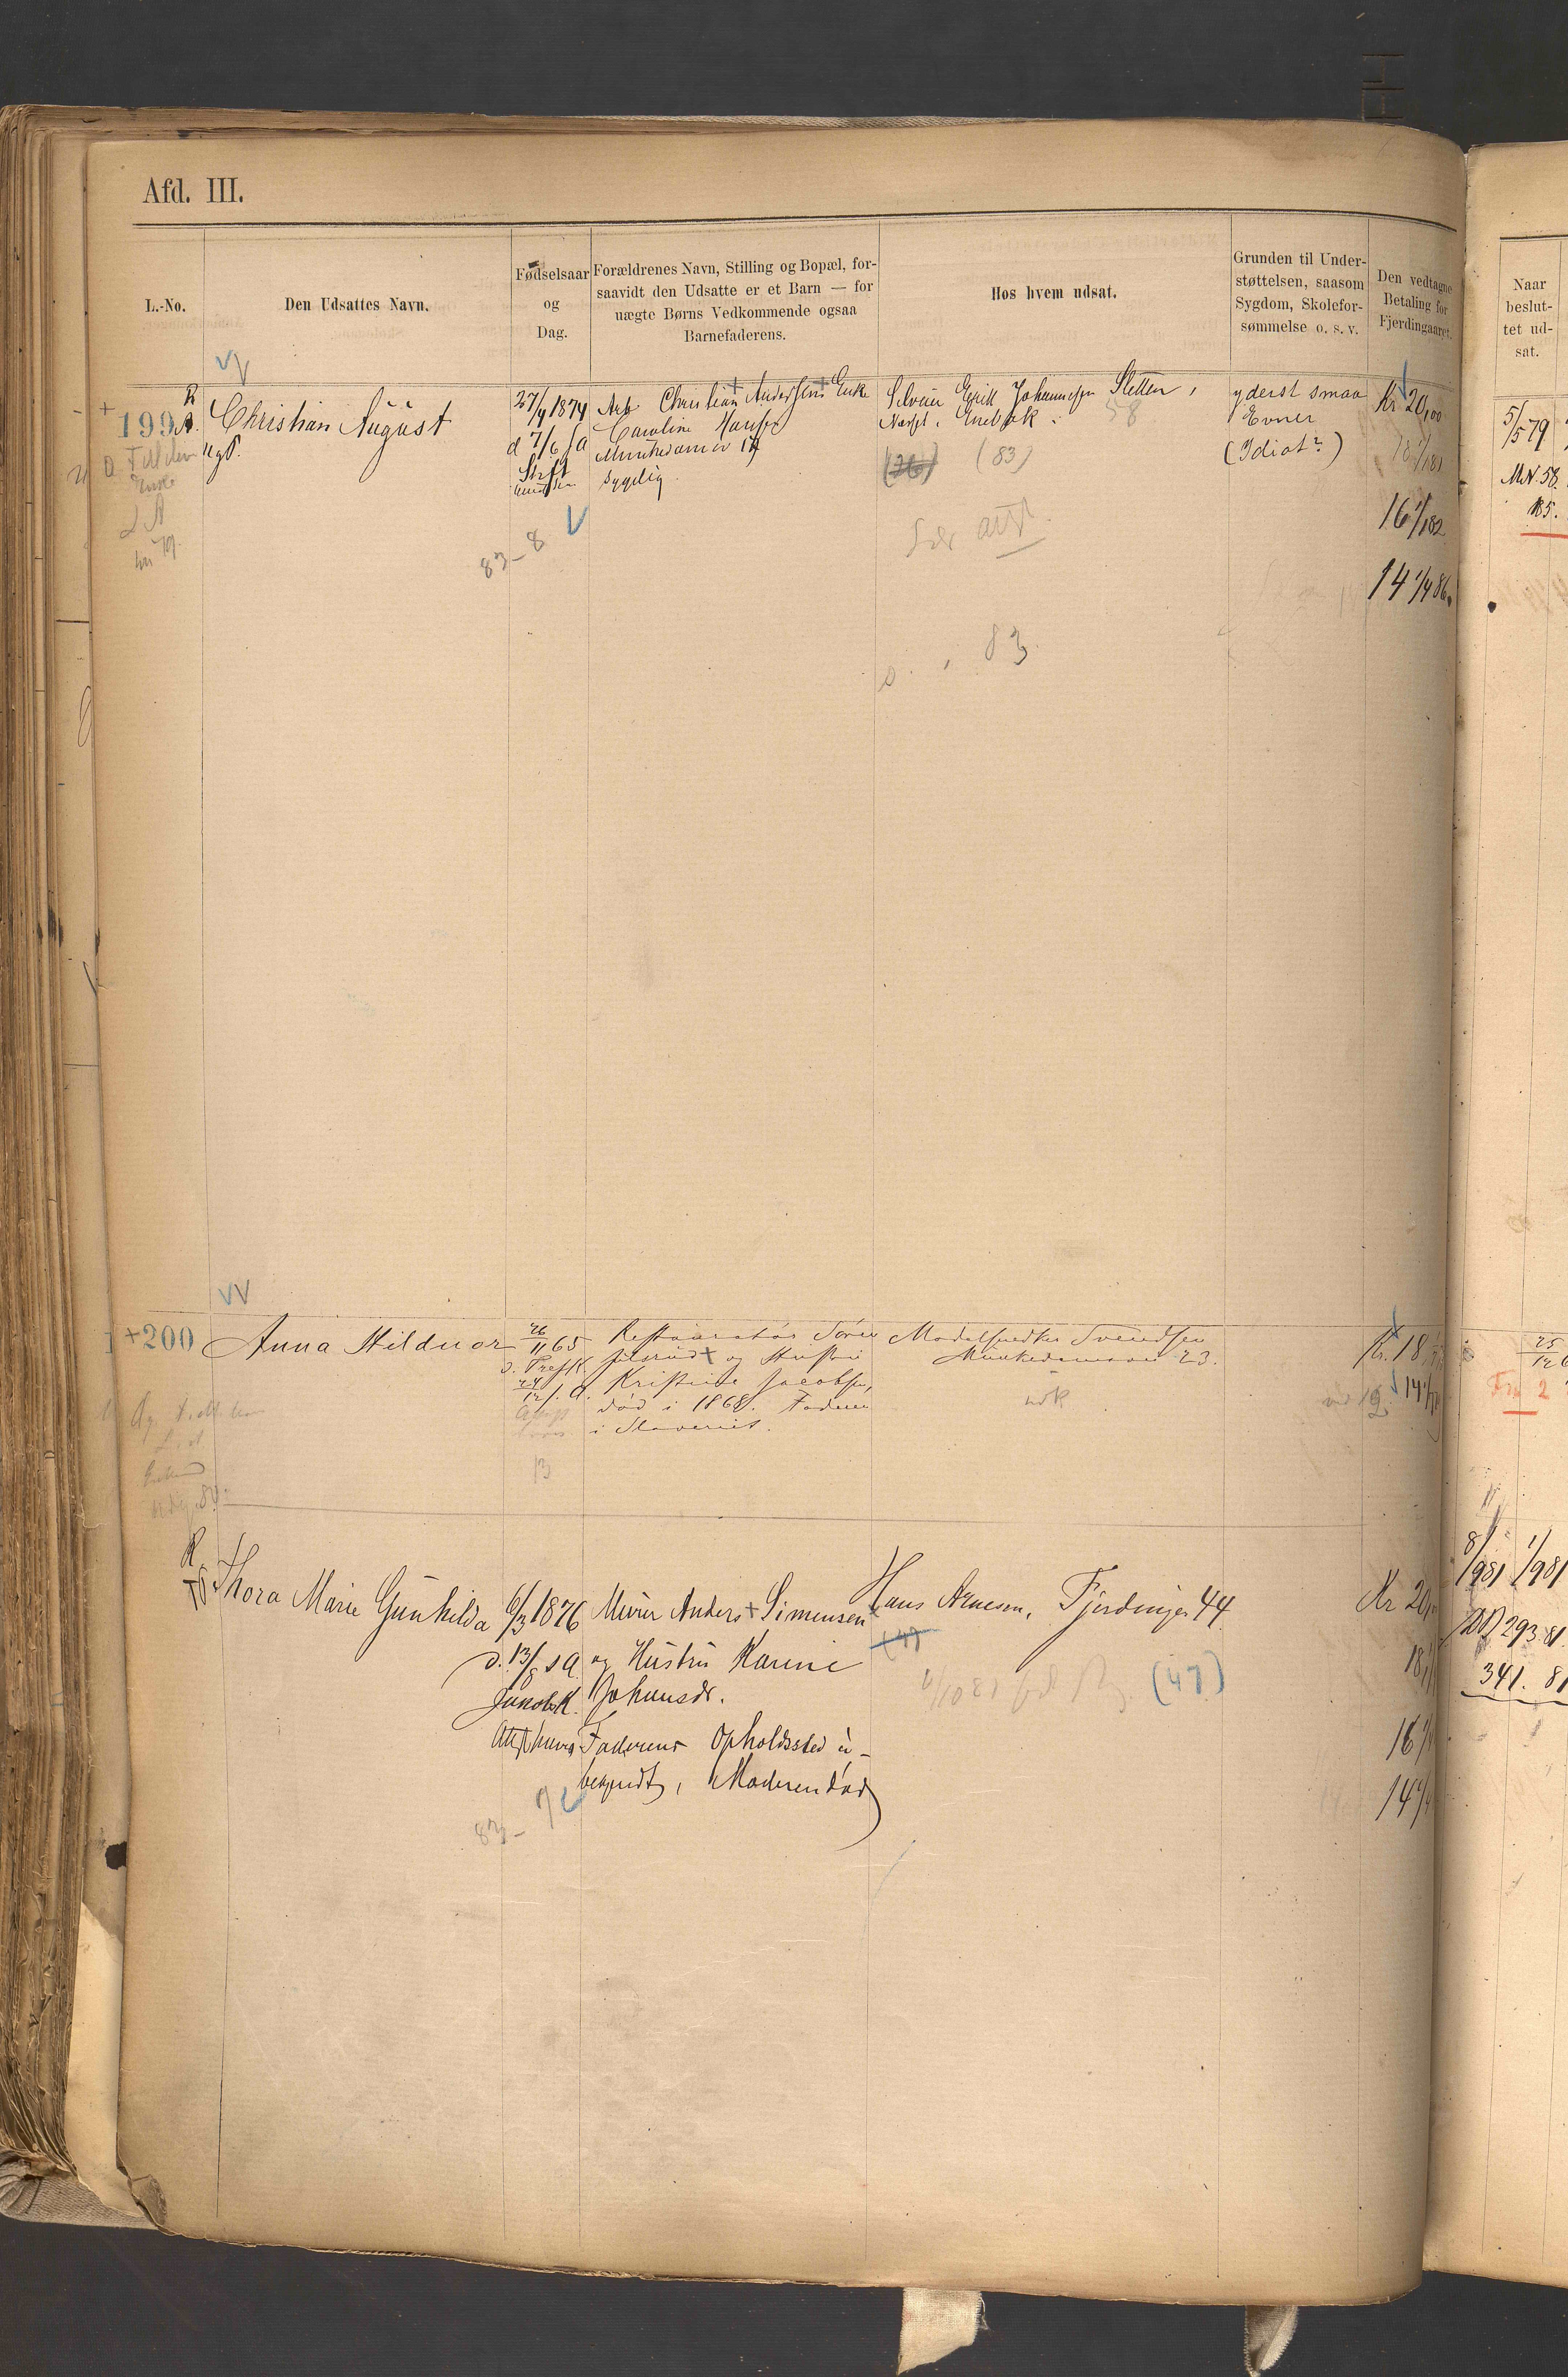 Afd. III.
L.-No.
Den Udsattes Navn.
Fødselsaar
og
Dag.
Forældrenes Navn, Stilling og Bopæl, for-
saavidt den Udsatte er et Barn — for
uægte Børns Vedkommende ogsaa
Barnefaderens.
Hos hvem udsat.
Grunden til Under-
støttelsen, saasom
Sygdom, Skolefor-
sømmelse o. s. v.
Den vedtagne
Betaling for
Fjerdingaaret.
Naar
beslut-
tet ud-
sat.
R
+ 199 A.
Christian August
27/4 1874
d 7/6 s a
Arb Christian Andersens Enke
Caroline Hansen
Munkedamsv 17
sygelig
Selveier Erik Johannesen Sletten,
Enebak.
58
(83)
yderst smaa
Evner
(Idiot?)
Kr 20,00
18 1/1 81
16 1/1 82
14 1/4 86.
5/5 79
MN. 58.
85.
83 - 8
83
+200
Anna Hilduor
26/11 65
24/12 s. a.
Restauratør Søren
+ og Hustru
Kristine Jacobsen,
død i 1868. Faderen
i Slaveriet.
Modelsnedker Svendsen
Munkedamsvei 23.
Kr. 18
14
25/12
13
R
Thora Marie Gunhilda
6/3 1876
d. 13/8 s a
Jakobs K.
Murer Anders + Simensen
og Hustru Karine
Johansdr.
Faderens Opholdssted u-
bekjendt, Moderen død
Hans Arnesen, Fjerdingen 44.
(47)
Kr 20
18
16
14
8/9 81 1/9 81
293. 81.
341. 81
83 - 9